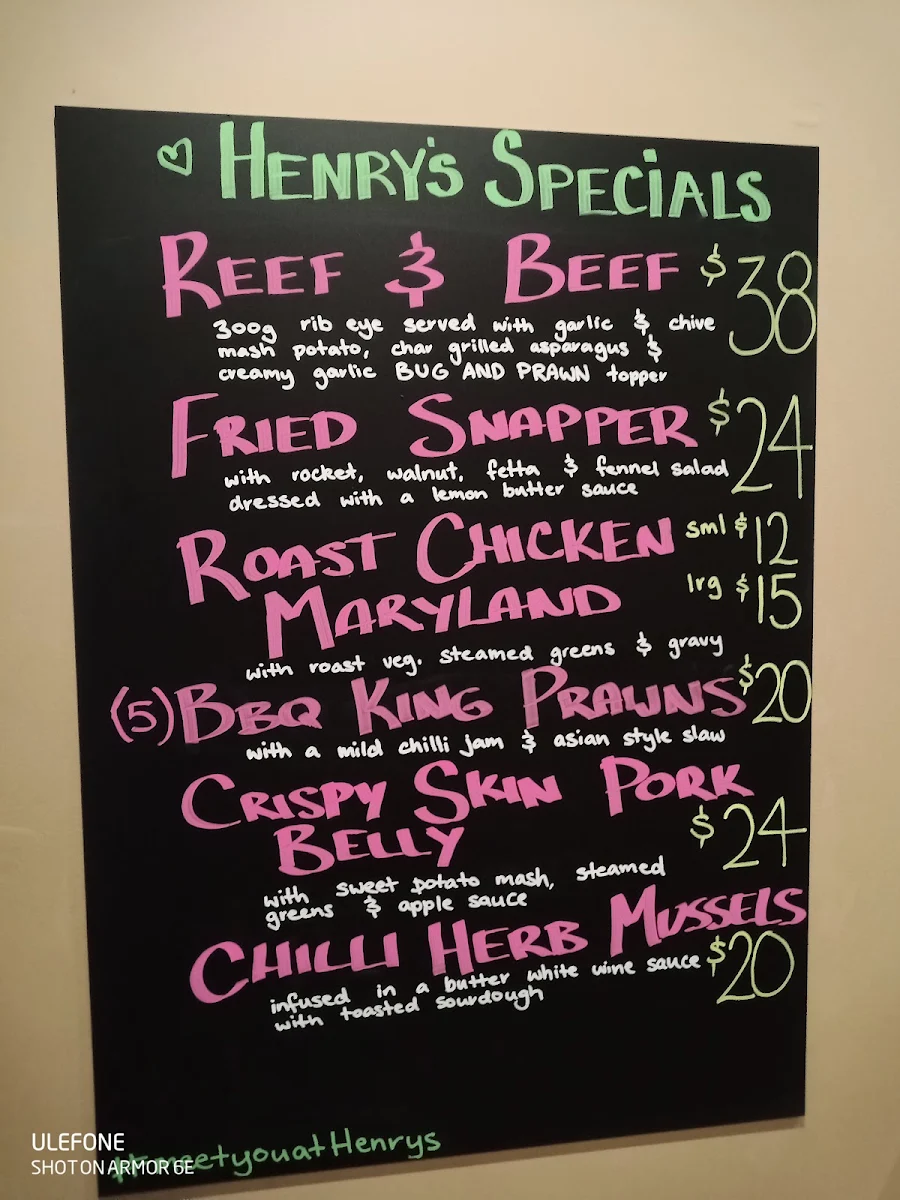 ♡ HENRY'S SPECIALS
REEF & BEEF $38
300g rib eye served with garlic & chive
mash potato, char grilled asparagus &
creamy garlic BUG AND PRAWN topper
FRIED SNAPPER $24
with rocket, walnut, fetta & fennel salad
dressed with a lemon butter sauce
ROAST CHICKEN sml $12
MARYLAND lrg $15
with roast veg. steamed greens & gravy
(5) BBQ KING PRAWNS $20
with a mild chilli jam & asian style slaw
CRISPY SKIN PORK
BELLY $24
with sweet potato mash, steamed
greens & apple sauce
CHILLI HERB MUSSELS
infused in a butter white wine sauce $20
with toasted sourdough
#meetyouatHenrys
ULEFONE
SHOT ON ARMOR 6E